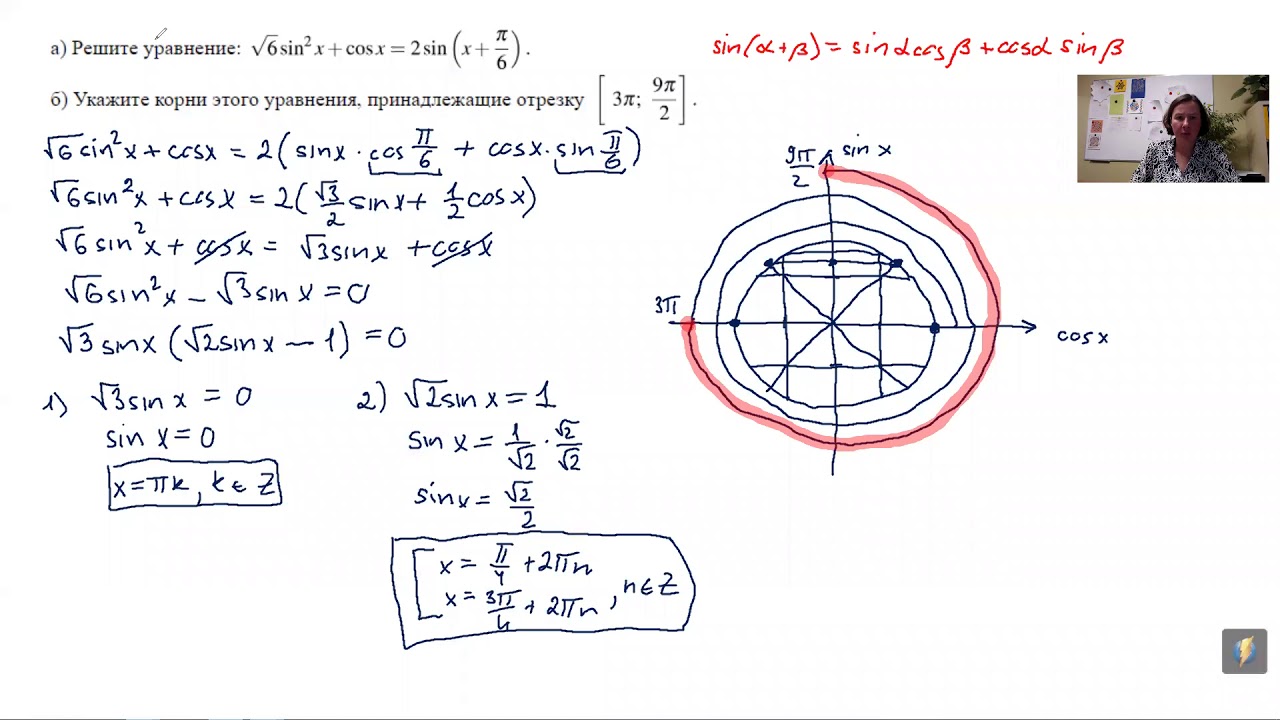 а) Решите уравнение: √6 sin² x + cos x = 2 sin (x + π/6) .
sin(α+β) = sinα cosβ + cosα sinβ
б) Укажите корни этого уравнения, принадлежащие отрезку [3π; 9π/2] .
√6 sin²x + cosx = 2(sinx · cos π/6 + cosx · sin π/6)
√6 sin²x + cosx = 2(√3/2 sinx + 1/2 cosx)
√6 sin²x + cosx = √3 sinx + cosx
√6 sin²x − √3 sinx = 0
√3 sinx (√2 sinx − 1) = 0
1) √3 sinx = 0
sin x = 0
x = πk, k ∈ Z
2) √2 sinx = 1
sin x = 1/√2 · √2/√2
sinx = √2/2
[ x = π/4 + 2πn
x = 3π/4 + 2πn , n ∈ Z
9π/2
sin x
3π
cos x